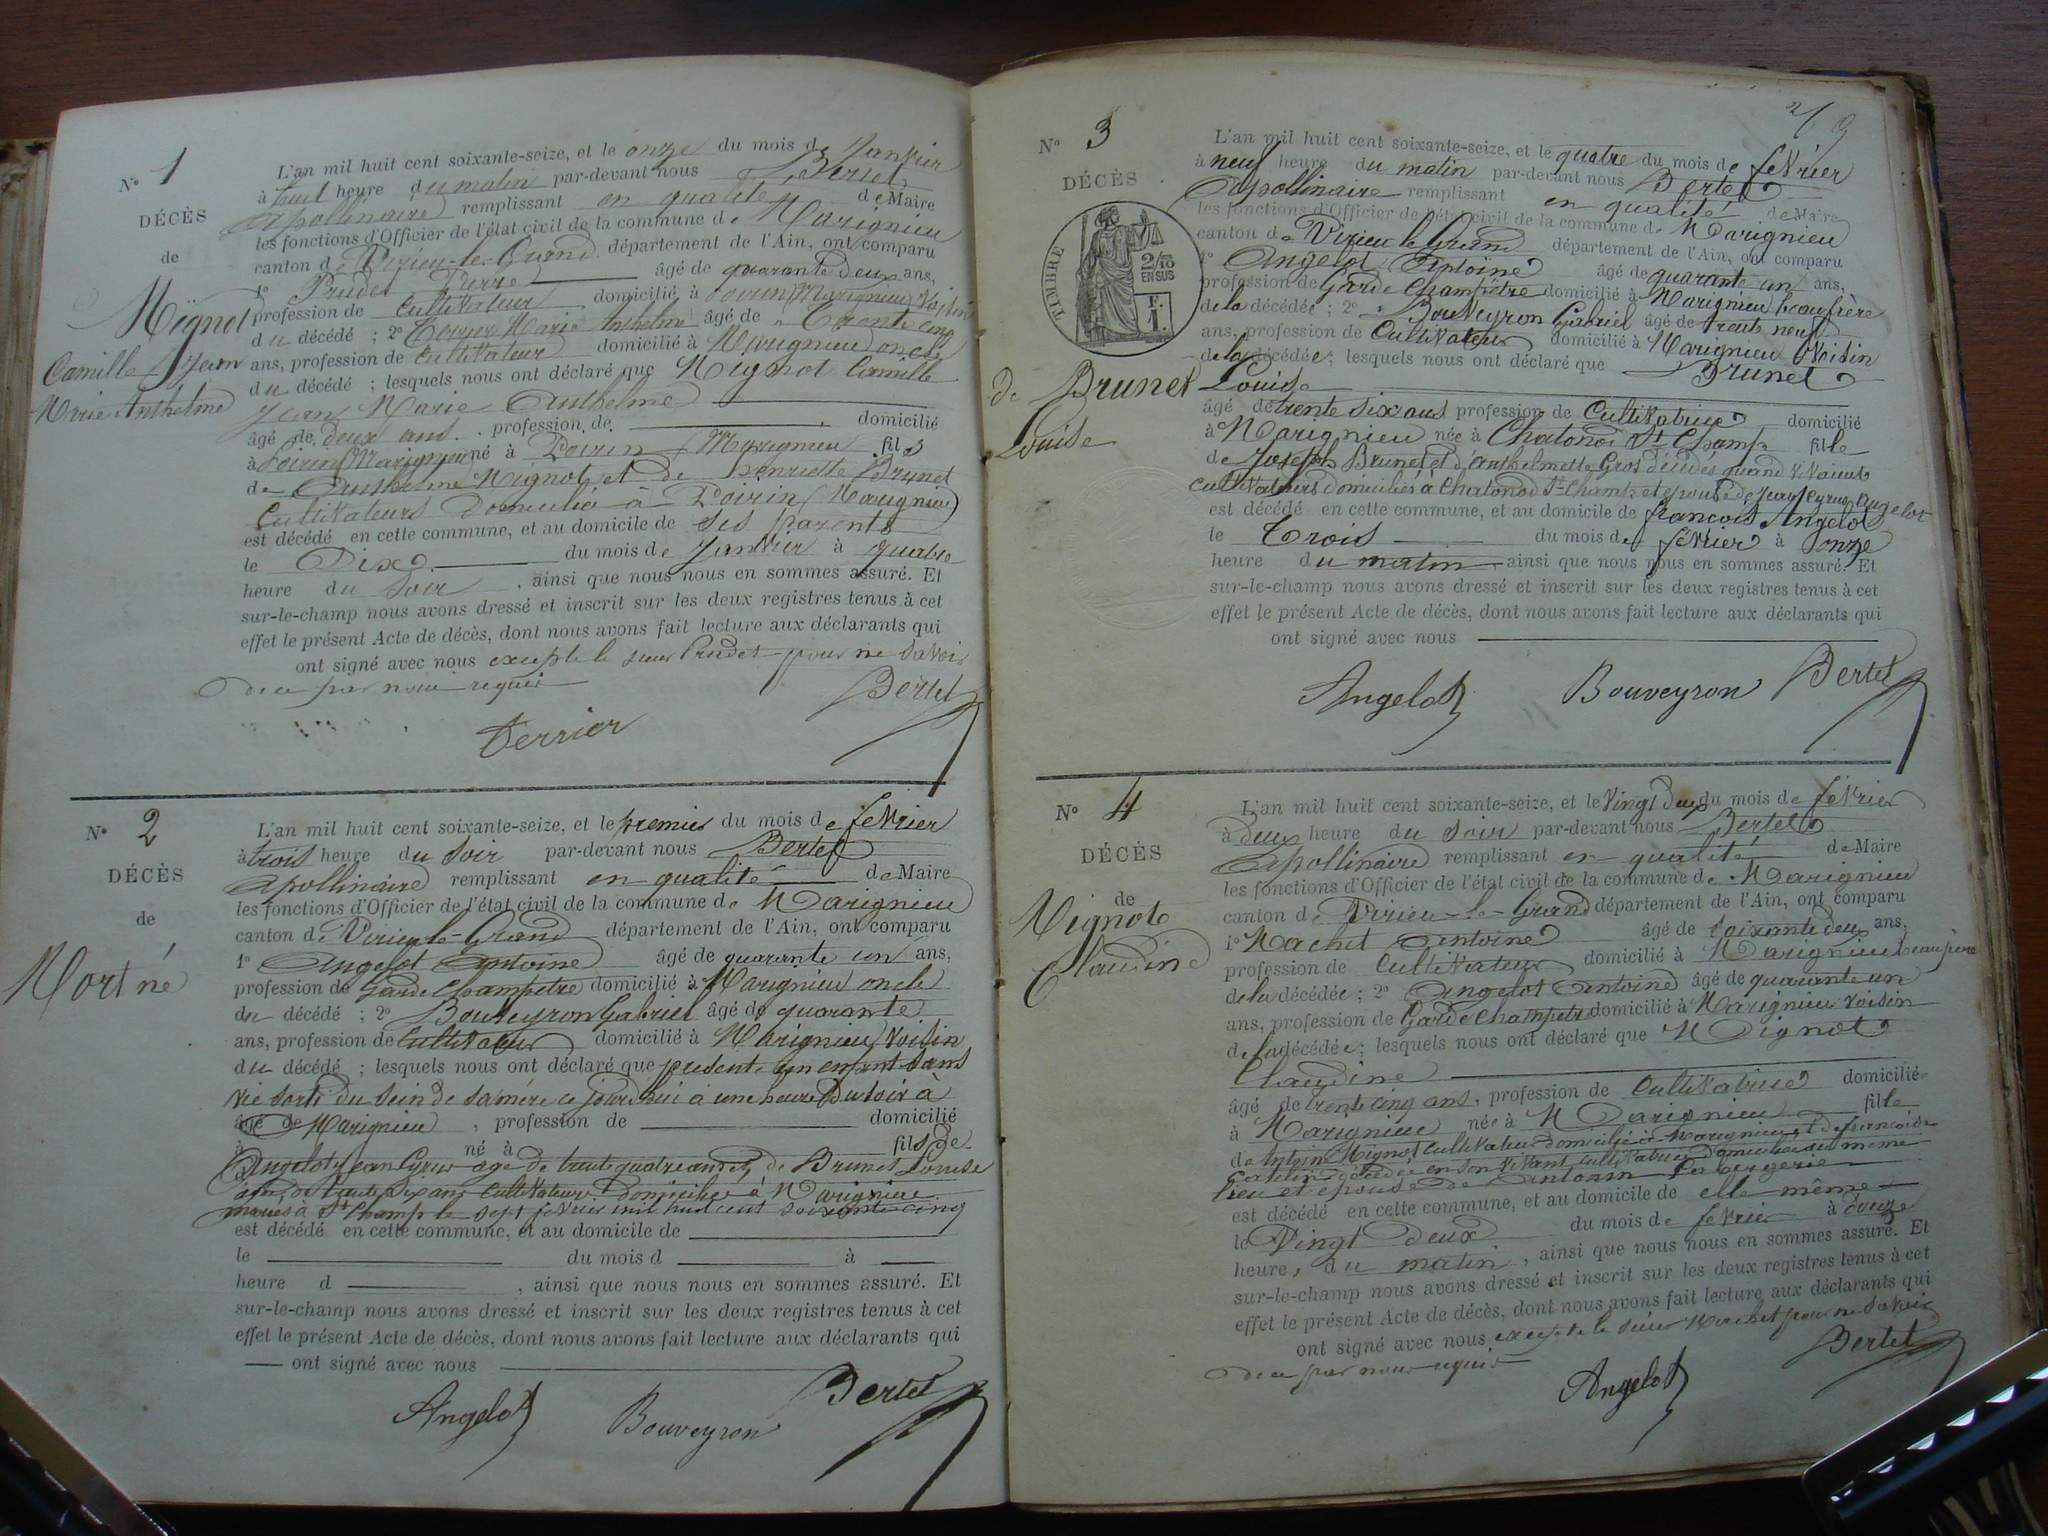 N° 1
DÉCÈS
de
Mignot
Camille Jean
Marie Anthelme
L'an mil huit cent soixante-seize, et le onze du mois de Janvier
à huit heure du matin par-devant nous Bertet
apollinaire remplissant en qualité de Maire
les fonctions d'Officier de l'état civil de la commune de Marignieu
canton de Virieu-le-Grand département de l'Ain, ont comparu
1° Prudet Pierre âgé de quarante deux ans,
profession de Cultivateur domicilié à Poirin (Marignieu) Voisin
du décédé ; 2° Marie Anthelme âgé de Trente cinq
ans, profession de Cultivateur domicilié à Marignieu oncle
du décédé ; lesquels nous ont déclaré que Mignot Camille
Jean Marie Anthelme
âgé de deux ans. profession de domicilié
à Poirin (Marignieu) né à Poirin (Marignieu) fils
de Anthelme Mignot et de henriette Brunet
Cultivateurs Domiciliés à Poirin (Marignieu)
est décédé en cette commune, et au domicile de ses parents
le Dix du mois de Janvier à quatre
heure du soir, ainsi que nous nous en sommes assuré. Et
sur-le-champ nous avons dressé et inscrit sur les deux registres tenus à cet
effet le présent Acte de décès, dont nous avons fait lecture aux déclarants qui
ont signé avec nous excepte le sieur Prudet pour ne Savoir
de ce par nous requis
Bertet
Terrier
N° 2
DÉCÈS
de
Mort né
L'an mil huit cent soixante-seize, et le premier du mois de février
à trois heure du soir par-devant nous Bertet
apollinaire remplissant en qualité de Maire
les fonctions d'Officier de l'état civil de la commune de Marignieu
canton de Virieu-le-Grand département de l'Ain, ont comparu
1° Angelot Antoine âgé de quarante un ans,
profession de garde Champetre domicilié à Marignieu oncle
du décédé ; 2° Bouveyron Gabriel âgé de quarante
ans, profession de Cultivateur domicilié à Marignieu Voisin
du décédé ; lesquels nous ont déclaré que presente un enfant sans
vie sorti du sein de sa mére ce jourd'hui à une heure Du soir à
âgé de Marignieu, profession de domicilié
à né à fils de
Angelot Jean Cyrus age de trente quatre ans et de Brunet Louise
agée de trente six ans Cultivateurs domiciliés à Marignieu
mariés à St Champ le sept fevrier mil huit cent soixante cinq
est décédé en cette commune, et au domicile de
le du mois d à
heure d, ainsi que nous nous en sommes assuré. Et
sur-le-champ nous avons dressé et inscrit sur les deux registres tenus à cet
effet le présent Acte de décès, dont nous avons fait lecture aux déclarants qui
ont signé avec nous
Angelot Bouveyron Bertet
N° 3
DÉCÈS
TIMBRE
2/10
EN SUS
de Brunet
Louise
L'an mil huit cent soixante-seize, et le quatre du mois de février
à neuf heure du matin par-devant nous Bertet
apollinaire remplissant en qualité de Maire
les fonctions d'Officier de l'état civil de la commune de Marignieu
canton de Virieu-le-Grand département de l'Ain, ont comparu
1° Angelot Antoine âgé de quarante un ans,
profession de Garde Champêtre domicilié à Marignieu beaufrère
de la décédée ; 2° Bouveyron Gabriel âgé de trente neuf
ans, profession de Cultivateur domicilié à Marignieu Voisin
de la décédée ; lesquels nous ont déclaré que Brunet
Louise
âgé de trente six ans profession de Cultivatrice domicilié
à Marignieu née à Chatonod St Champ fille
de Joseph Brunet et d'Anthelmette Gros décédés quand vivaient
cultivateurs domiciliés à Chatonod St Champ et épouse de Jean Cyrus Angelot
est décédé en cette commune, et au domicile de francois Angelot
le Trois du mois de février à onze
heure du matin ainsi que nous nous en sommes assuré. Et
sur-le-champ nous avons dressé et inscrit sur les deux registres tenus à cet
effet le présent Acte de décès, dont nous avons fait lecture aux déclarants qui
ont signé avec nous
Angelot Bouveyron Bertet
N° 4
DÉCÈS
de
Mignot
Claudine
L'an mil huit cent soixante-seize, et le Vingt deux du mois de février
à deux heure du soir par-devant nous Bertet
apollinaire remplissant en qualité de Maire
les fonctions d'Officier de l'état civil de la commune de Marignieu
canton de Virieu-le-Grand département de l'Ain, ont comparu
1° Machet Antoine âgé de soixante deux ans,
profession de Cultivateur domicilié à Marignieu beaupere
de la décédée ; 2° Angelot Antoine âgé de quarante un
ans, profession de Garde Champetre domicilié à Marignieu Voisin
de la décédée ; lesquels nous ont déclaré que Mignot
Claudine
âgé de trente cinq ans, profession de Cultivatrice domicilié
à Marignieu née à Marignieu fille
de Antoine Mignot Cultivateur domicilié à Marignieu et de francoise
décédée en son vivant Cultivatrice domiciliée au même
lieu et epouse de Antonin
est décédé en cette commune, et au domicile de elle même
le Vingt deux du mois de février à douze
heure, du matin, ainsi que nous nous en sommes assuré. Et
sur-le-champ nous avons dressé et inscrit sur les deux registres tenus à cet
effet le présent Acte de décès, dont nous avons fait lecture aux déclarants qui
ont signé avec nous, excepte le sieur Machet pour ne Savoir
de ce par nous requis
Bertet
Angelot